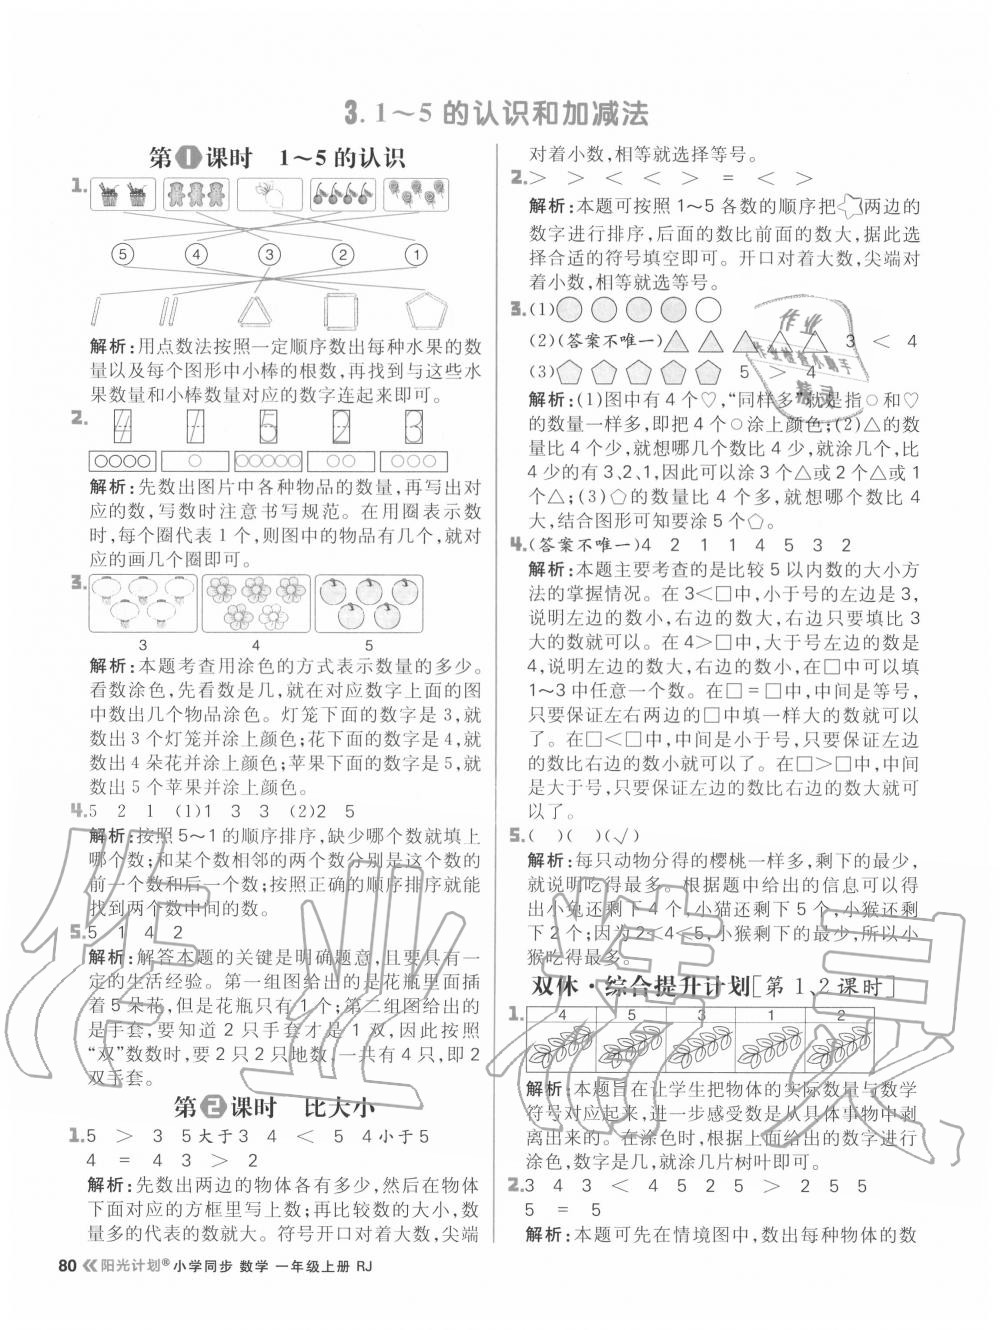 3. 1～5 的认识和加减法
第1课时　1～5 的认识
1.
5　4　3　2　1
解析:用点数法按照一定顺序数出每种水果的数
量以及每个图形中小棒的根数,再找到与这些水
果数量和小棒数量对应的数字连起来即可。
2.
4　1　5　2　3
○○○○　○　○○○○○　○○　○○○
解析:先数出图片中各种物品的数量,再写出对
应的数,写数时注意书写规范。在用圈表示数
时,每个圈代表 1 个,则图中的物品有几个,就对
应的画几个圈即可。
3.
3　4　5
解析:本题考查用涂色的方式表示数量的多少。
看数涂色,先看数是几,就在对应数字上面的图
中数出几个物品涂色。灯笼下面的数字是 3,就
数出 3 个灯笼并涂上颜色;花下面的数字是 4,就
数出 4 朵花并涂上颜色;苹果下面的数字是 5,就
数出 5 个苹果并涂上颜色。
4.5　2　1　(1)1　3　3　(2)2　5
解析:按照 5～1 的顺序排序,缺少哪个数就填上
哪个数;和某个数相邻的两个数分别是这个数的
前一个数和后一个数;按照正确的顺序排序就能
找到两个数中间的数。
5.5　1　4　2
解析:解答本题的关键是明确题意,且要具有一
定的生活经验。第一组图给出的是花瓶里面插
着 5 朵花,但是花瓶只有 1 个;第二组图给出的
是手套,要知道 2 只手套才是 1 双,因此按照
“双”数数时,要 2 只 2 只地数,一共有 4 只,即 2
双手套。
第2课时　比大小
1.5　>　3　5大于3　4　<　5　4小于5
4　=　4　3　>　2
解析:先数出两边的物体各有多少,然后在物体
下面对应的方框里写上数;再比较数的大小,数
量多的代表的数就大。符号开口对着大数,尖端
对着小数,相等就选择等号。
2.>　>　<　<　>　=　<　>
解析:本题可按照 1～5 各数的顺序把☆两边的
数字进行排序,后面的数比前面的数大,据此选
择合适的符号填空即可。开口对着大数,尖端对
着小数,相等就选等号。
3.(1)○○○○○
(2)(答案不唯一)△△△△△　3　<　4
(3)⬠⬠⬠⬠⬠　5　>　4
解析:(1)图中有 4 个♡,“同样多”就是指○和♡
的数量一样多,即把 4 个○涂上颜色;(2)△的数
量比 4 个少,就想哪几个数比 4 少,就涂几个,比
4 少的有 3、2、1,因此可以涂 3 个△或 2 个△或 1
个△;(3)⬠的数量比 4 个多,就想哪个数比 4
大,结合图形可知要涂 5 个⬠。
4.(答案不唯一)4　2　1　1　4　5　3　2
解析:本题主要考查的是比较 5 以内数的大小方
法的掌握情况。在 3<□中,小于号的左边是 3,
说明左边的数小,右边的数大,右边只要填比 3
大的数就可以。在 4>□中,大于号左边的数是
4,说明左边的数大,右边的数小,在□中可以填
1～3 中任意一个数。在□=□中,中间是等号,
只要保证左右两边的□中填一样大的数就可以
了。在□<□中,中间是小于号,只要保证左边
的数比右边的数小就可以了。在□>□中,中间
是大于号,只要保证左边的数比右边的数大就可
以了。
5.(　)(　)(√)
解析:每只动物分得的樱桃一样多,剩下的最少,
就说明吃得最多。根据题中给出的信息可以得
出小兔还剩下 4 个,小猫还剩下 5 个,小猴还剩
下 2 个;因为 2<4<5,小猴剩下的最少,所以小
猴吃得最多。
双休·综合提升计划[第 1、2 课时]
1.
4　5　3　1　2
解析:本题旨在让学生把物体的实际数量与数学
符号对应起来,进一步感受数是从具体事物中剥
离出来的。在涂色时,根据上面给出的数字进行
涂色,数字是几,就涂几片树叶即可。
2.3　4　3　<　4　5　2　5　>　2　5　5
5　=　5
解析:本题可先在情境图中,数出每种物体的数
80 《阳光计划®小学同步 数学 一年级上册 RJ